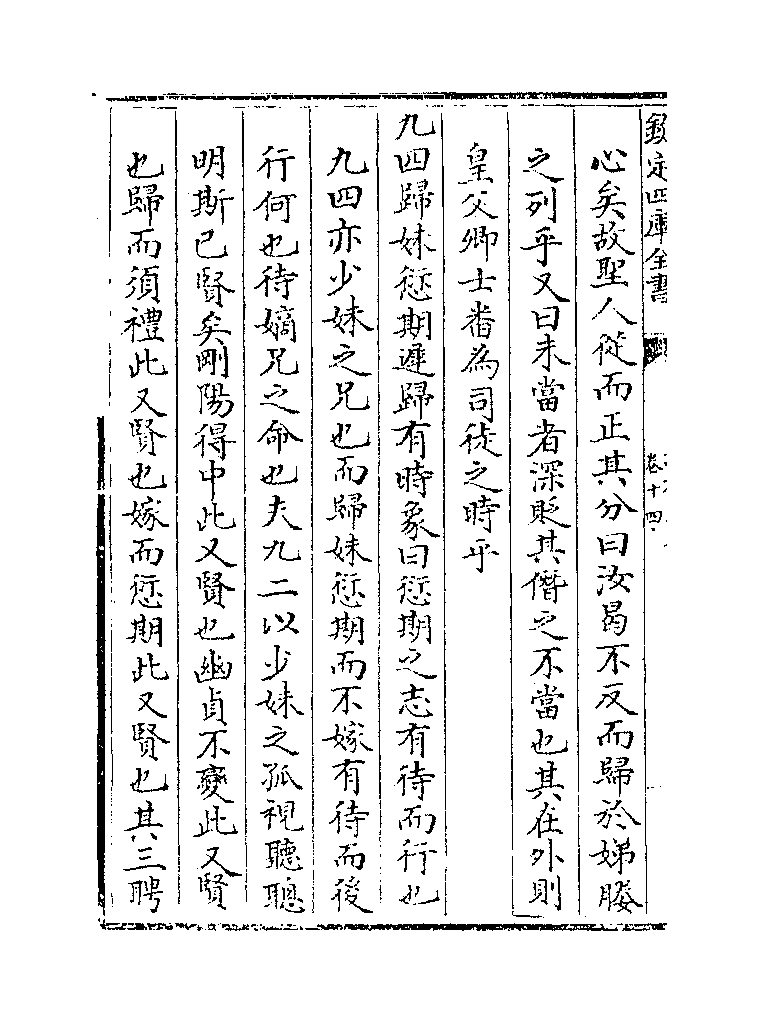 欽定四庫全書
卷十四
心矣故聖人從而正其分曰汝曷不反而歸於娣媵
之列乎又曰未當者深貶其僭之不當也其在外則
皇父卿士番為司徒之時乎
九四歸妹愆期遲歸有時象曰愆期之志有待而行也
九四亦少妹之兄也而歸妹愆期而不嫁有待而後
行何也待嫡兄之命也夫九二以少妹之孤視聽聰
明斯已賢矣剛陽得中此又賢也幽貞不變此又賢
也歸而須禮此又賢也嫁而愆期此又賢也其三聘